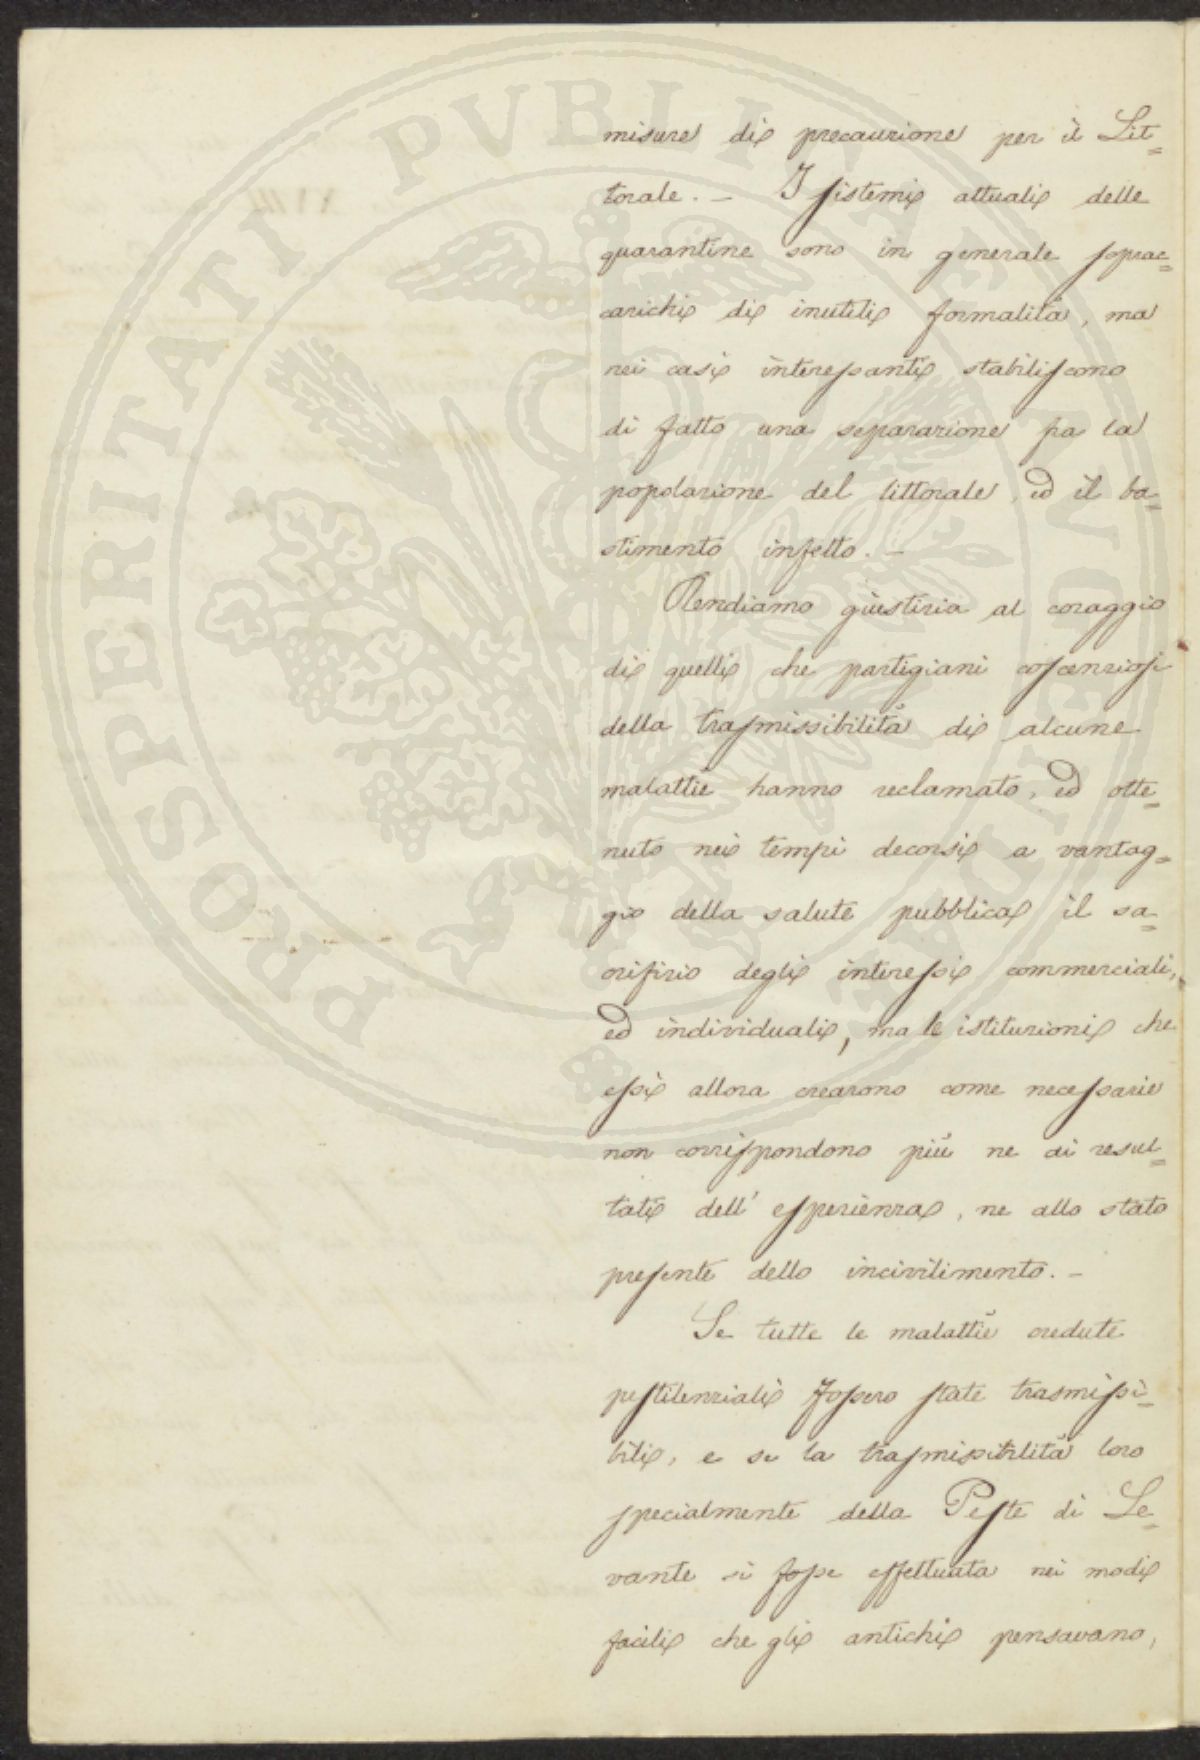 misure di precauzione per il Lit=
torale. — I sistemi attuali delle
quarantine sono in generale soprac=
carichi di inutili formalità, ma
nei casi interessanti stabiliscono
di fatto una separazione fra la
popolazione del littorale, ed il ba=
stimento infetto. —
Rendiamo giustizia al coraggio
di quelli che partigiani coscenziosi
della trasmissibilità di alcune
malattie hanno reclamato, ed otte=
nuto nei tempi decorsi a vantag=
gio della salute pubblica il sa=
crifizio degli interessi commerciali,
ed individuali, ma le istituzioni che
essi allora crearono come necessarie
non corrispondono più ne ai resul=
tati dell' esperienza, ne allo stato
presente dello incivilimento. —
Se tutte le malattie credute
pestilenziali fossero state trasmissi=
bili, e se la trasmissibilità loro
specialmente della Peste di Le=
vante si fosse effettuata nei modi
facili che gli antichi pensavano,
PROSPERITATI PVBLICAE AVGENDAE